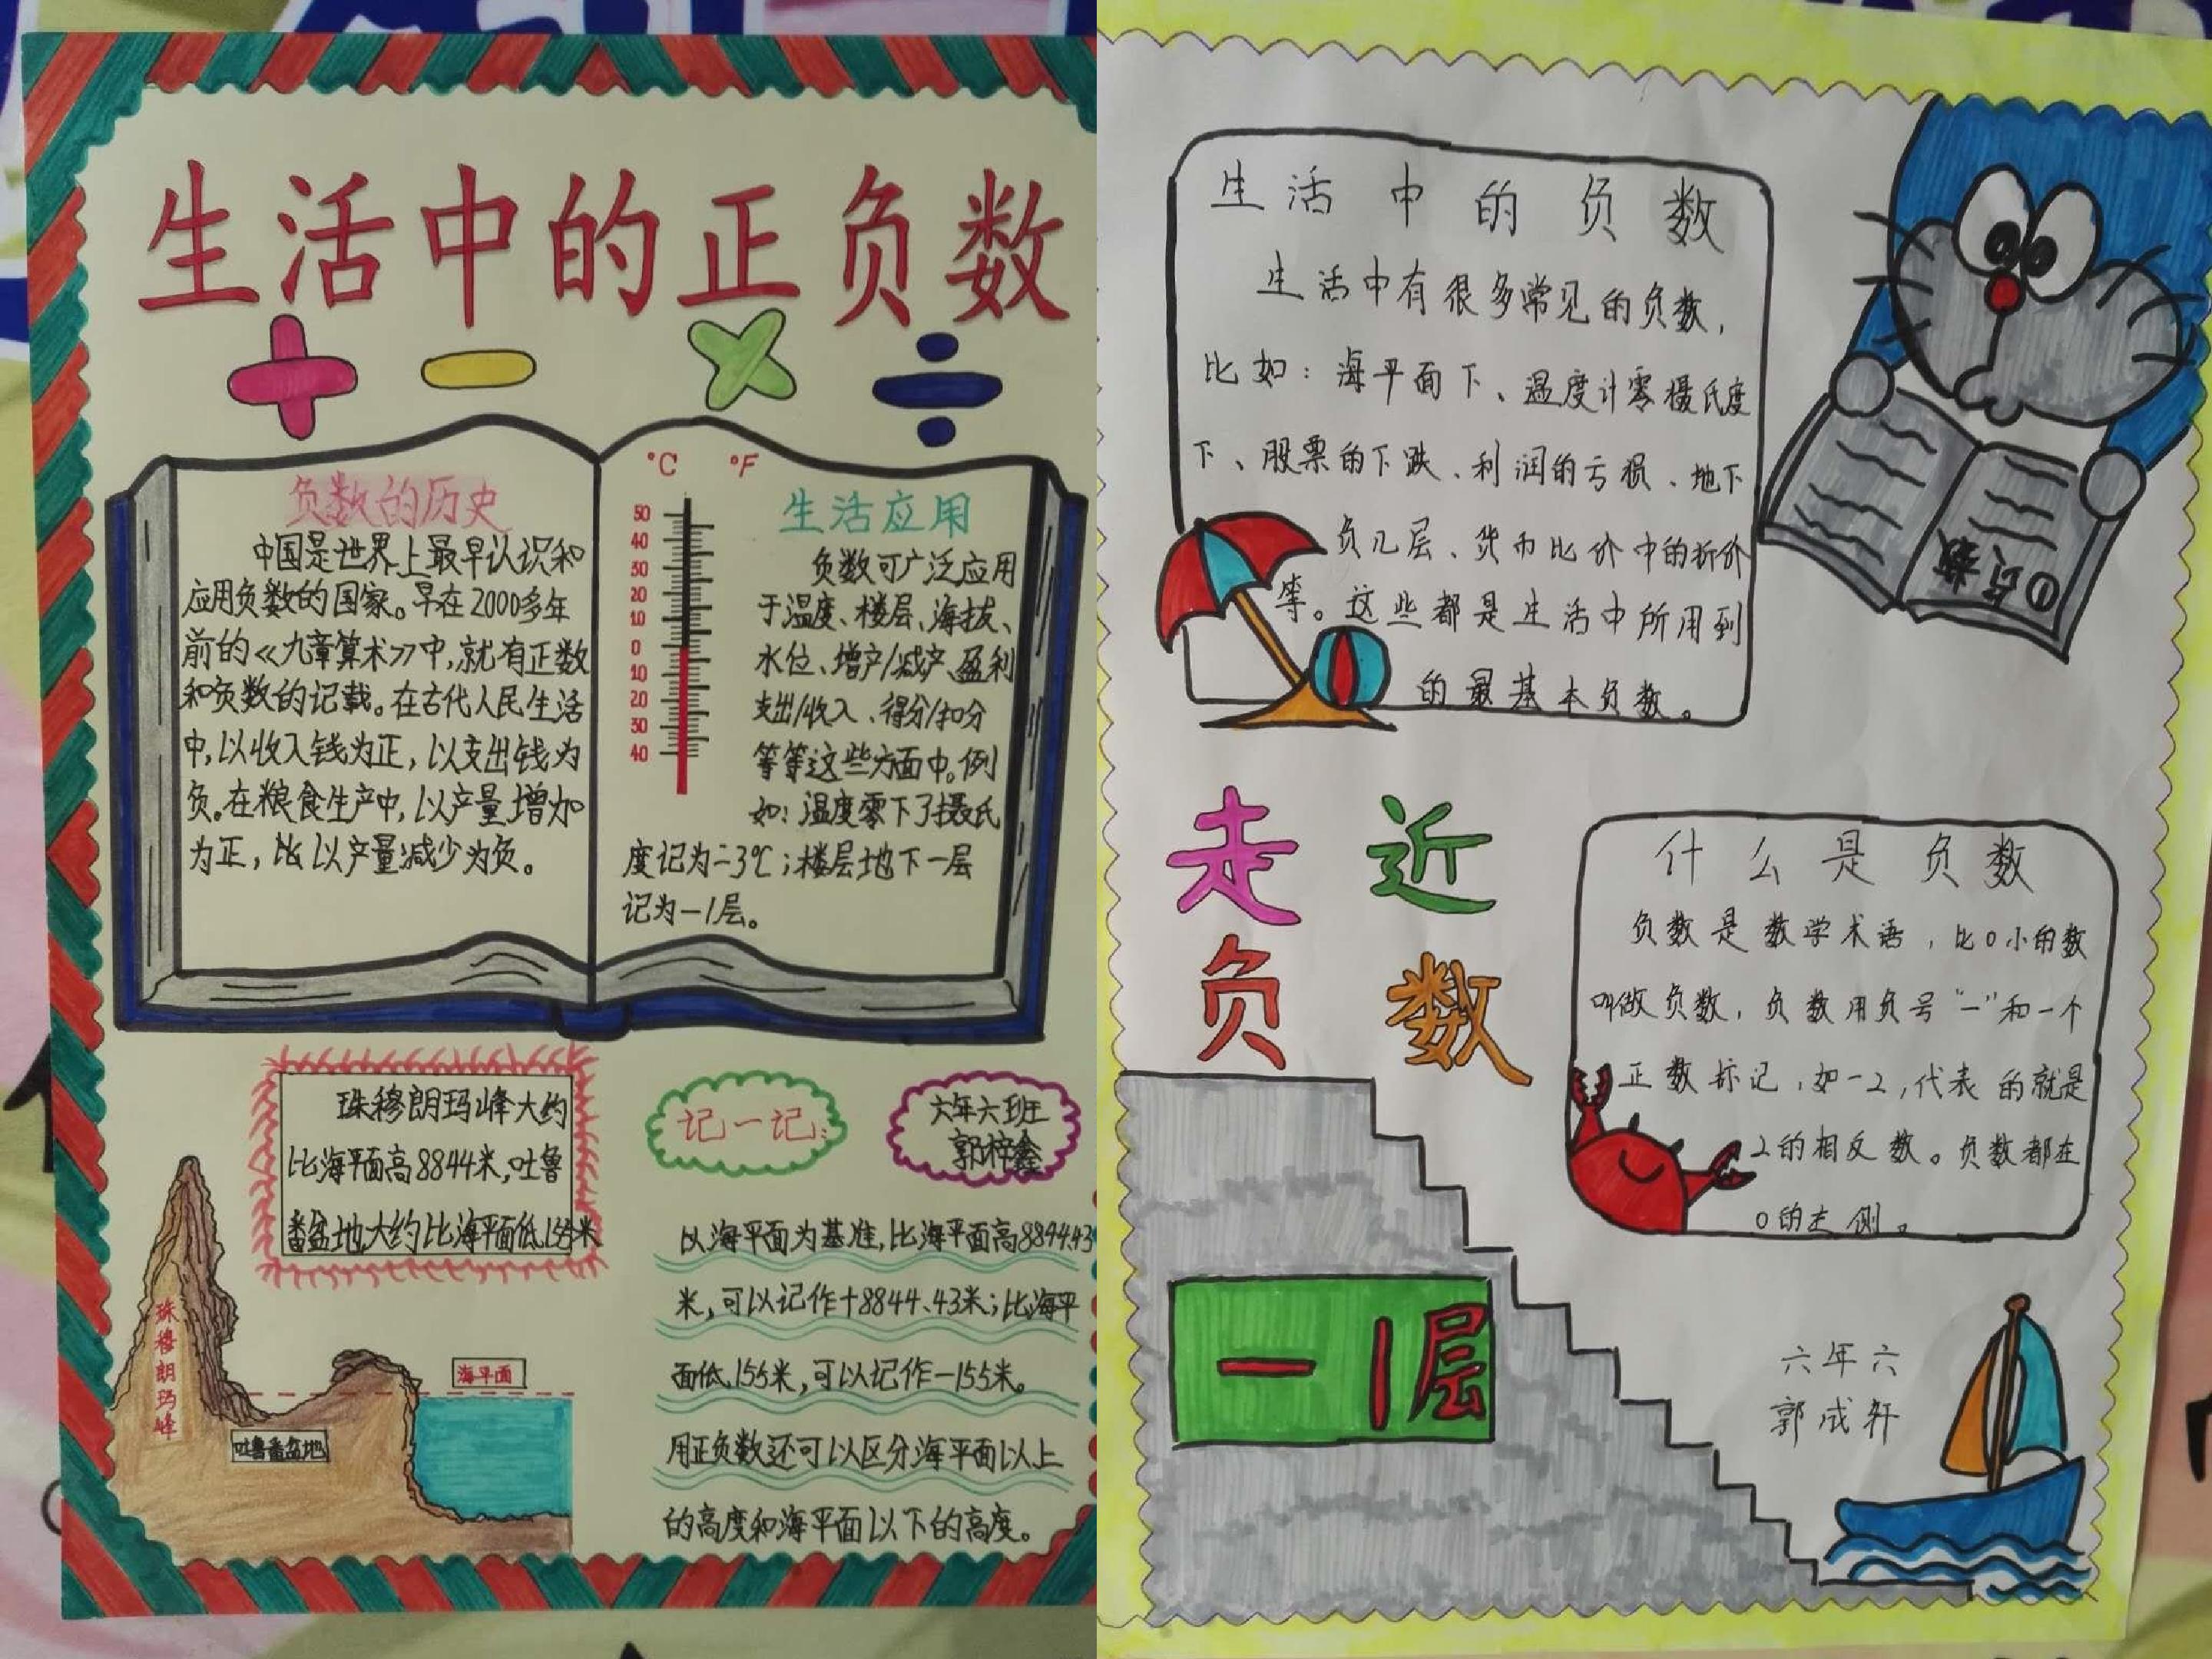 生活中的正负数
负数的历史
中国是世界上最早认识和
应用负数的国家。早在2000多年
前的《九章算术》中,就有正数
和负数的记载。在古代人民生活
中,以收入钱为正,以支出钱为
负。在粮食生产中,以产量增加
为正,比以产量减少为负。
°C °F
50
40
30
20
10
0
10
20
30
40
生活应用
负数可广泛应用
于温度、楼层、海拔、
水位、增产/减产、盈利
支出/收入、得分/扣分
等等这些方面中。例
如:温度零下了摄氏
度记为-3℃;楼层地下一层
记为-1层。
珠穆朗玛峰大约
比海平面高8844米,吐鲁
番盆地大约比海平面低155米
珠穆朗玛峰
吐鲁番盆地
海平面
记一记:
六年六班
郭梓鑫
以海平面为基准,比海平面高8844.43
米,可以记作+8844.43米;比海平
面低155米,可以记作-155米。
用正负数还可以区分海平面以上
的高度和海平面以下的高度。
生活中的负数
生活中有很多常见的负数,
比如:海平面下、温度计零摄氏度
下、股票的下跌、利润的亏损、地下
负几层、货币比价中的折价
等。这些都是生活中所用到
的最基本负数。
负数①
走近
负数
什么是负数
负数是数学术语,比0小的数
叫做负数,负数用负号“-”和一个
正数标记,如-2,代表的就是
2的相反数。负数都在
0的左侧。
-1层
六年六
郭成轩